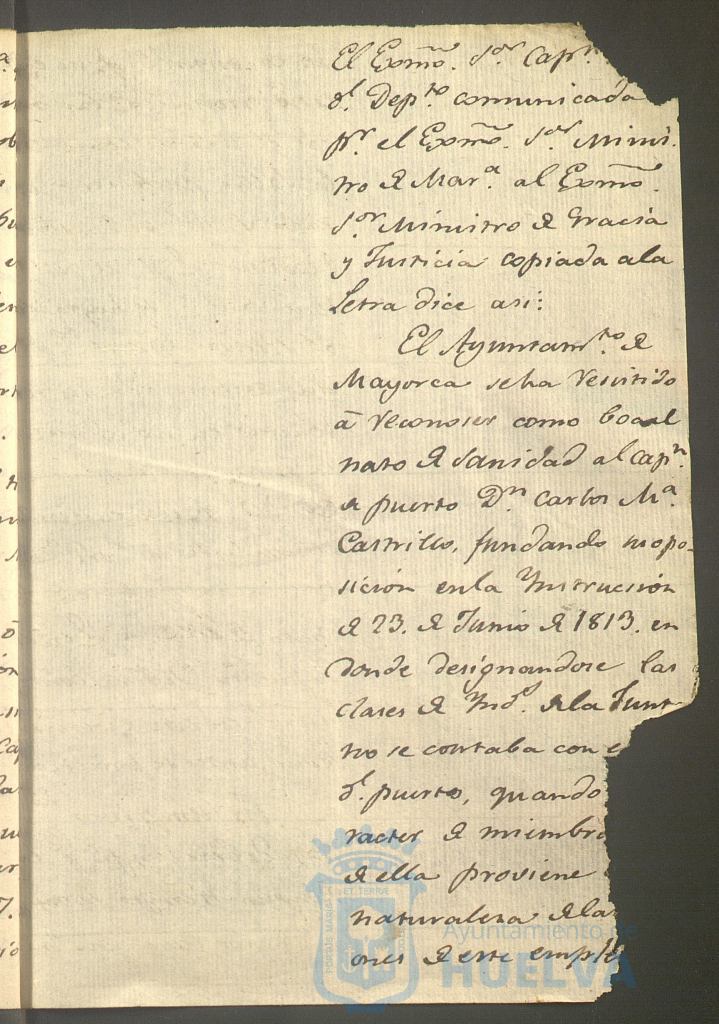 El Exmô. S.or Cap.n
d.l Dep.to comunicada
p.r el Exmô. S.or Minis.
tro de Mar.a al Exmô.
S.or Ministro de Gracia
y Justicia copiada ala
Letra dice asi:
El Ayuntam.to de
Mayorca seha resistido
â reconoser como bocal
nato de Sanidad al cap.n
de puerto D.n Carlos M.a
Castrillo, fundando suopo-
sición enla Ynstrucción
de 23. de Junio de 1813. en
donde designandose las
clases de Ynd.s dela Junt
no se contaba con e
d.l puerto, quando
racter de miembro
de ella proviene
naturalesa dela
ones de este emple
Ayuntamiento de
HUELVA